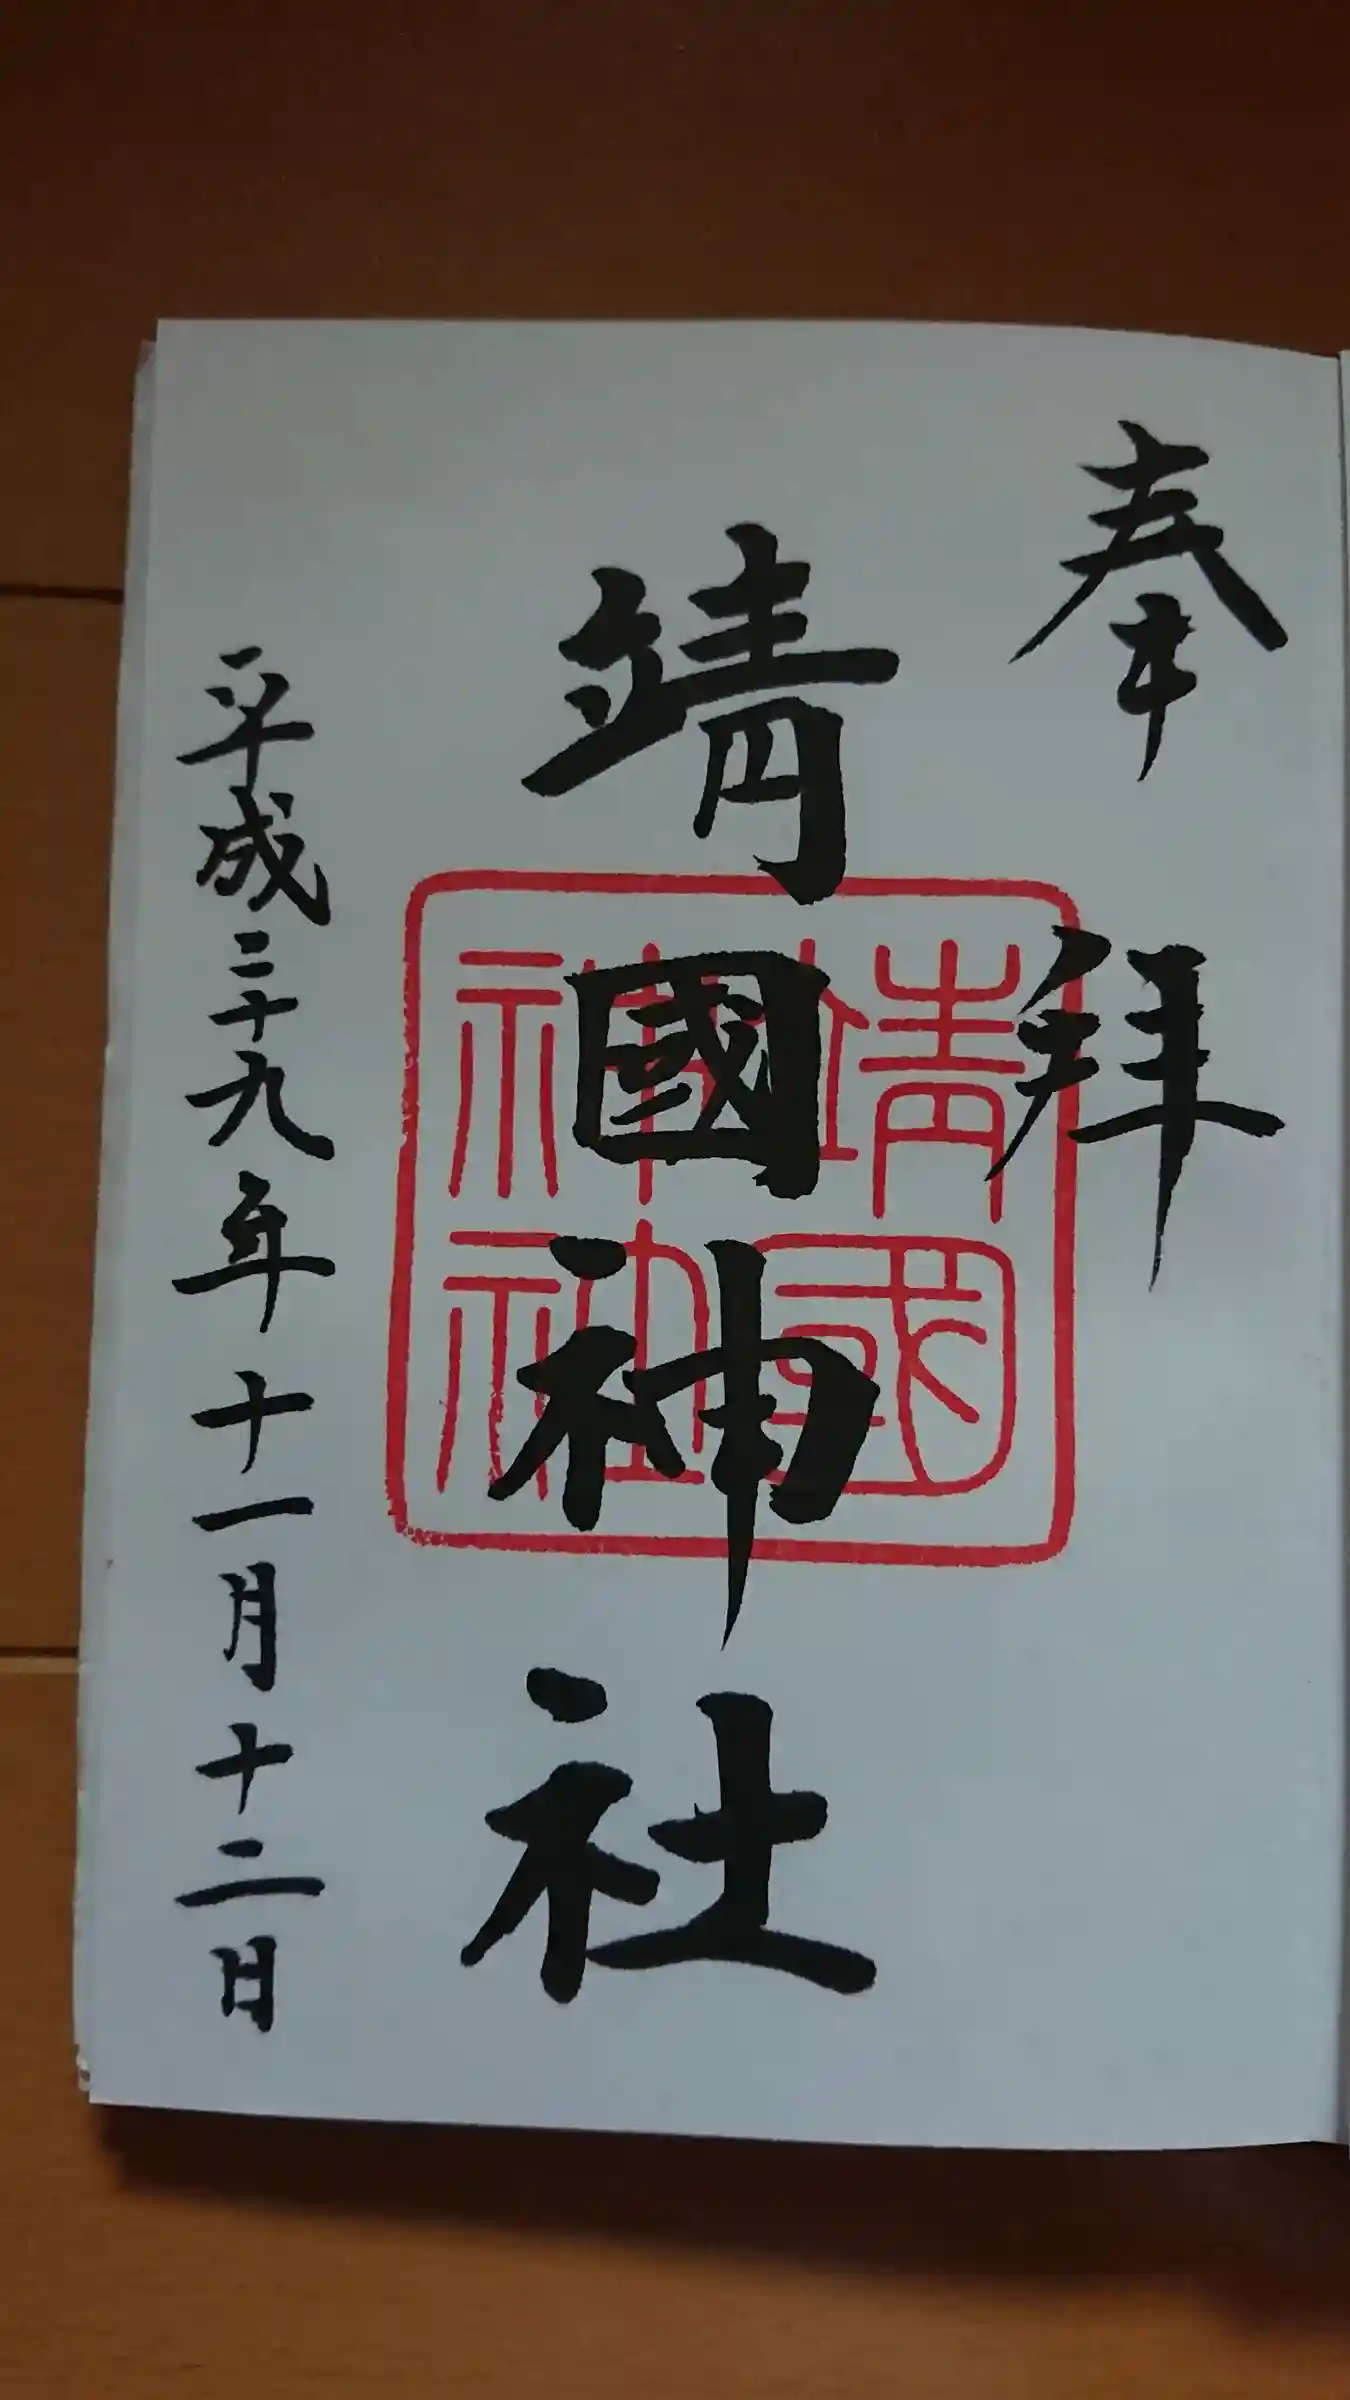 奉拝
靖國神社
靖國神社
平成二十九年十一月十二日